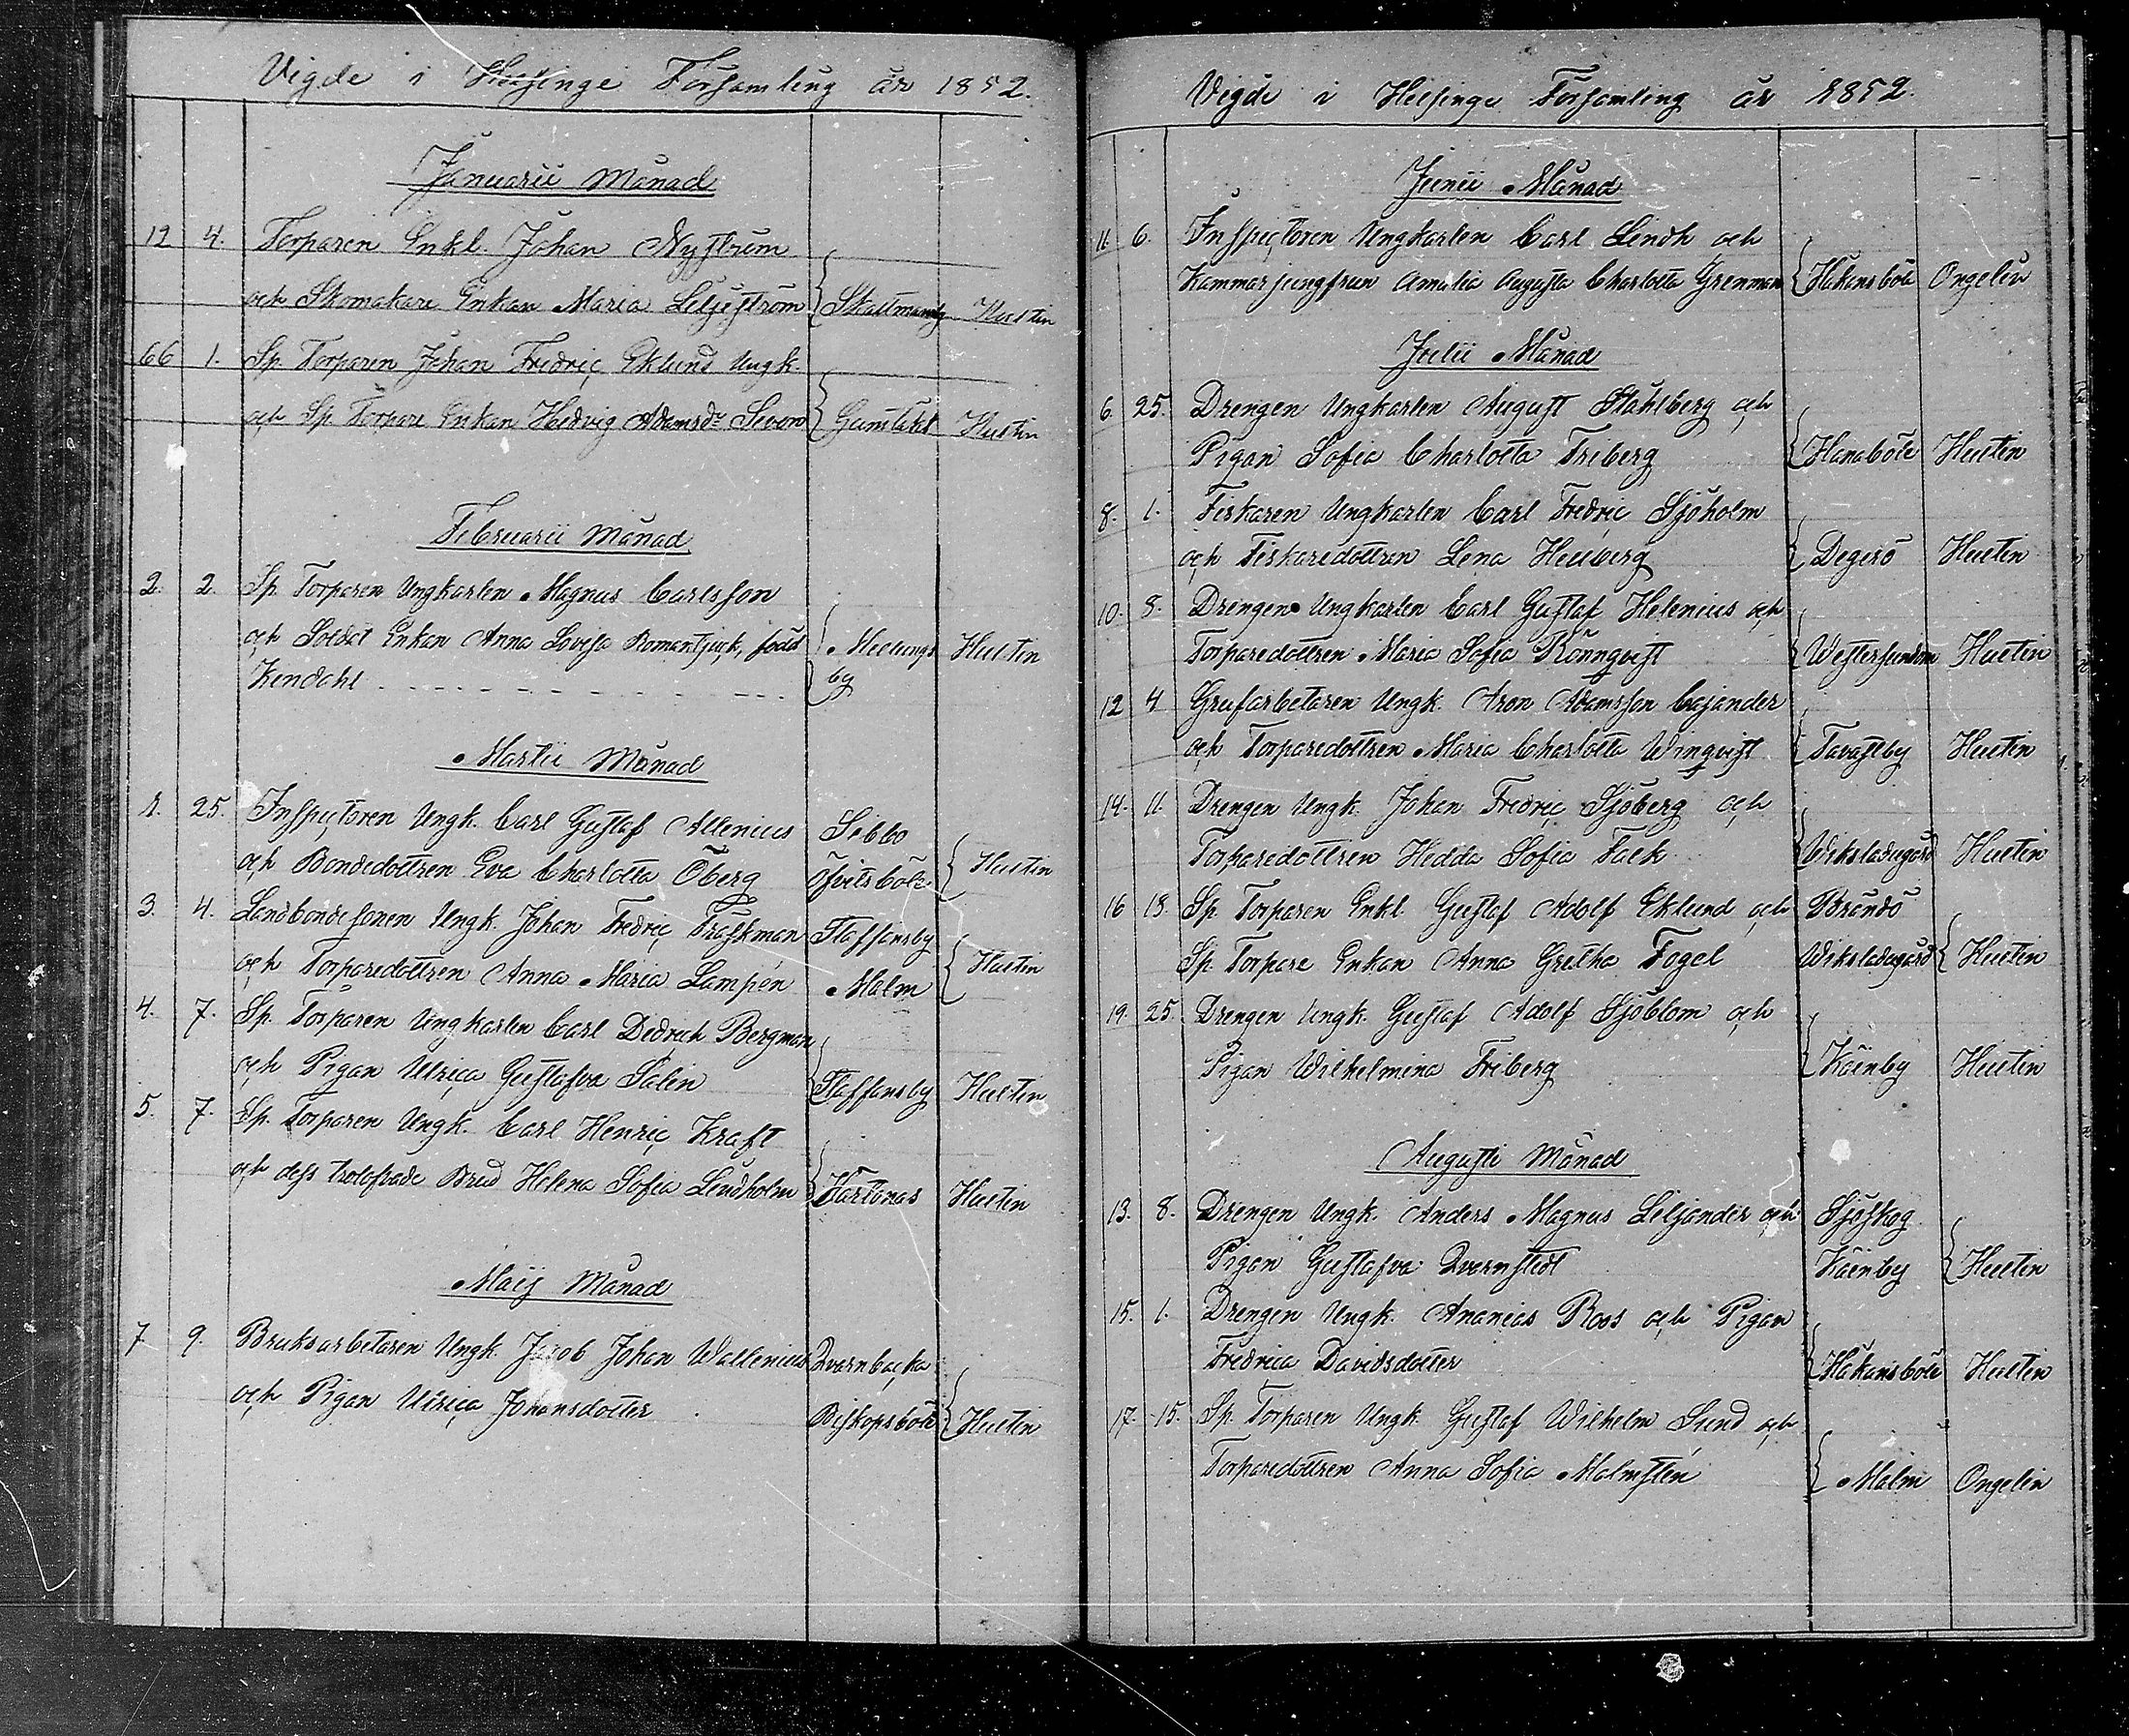 Vigde i Helsinge Församling år 1852.
Januarii Månad
12 4. Torparen Enkl. Johan Nyström
och Skomakare Enkan Maria Liljeström Hultin
66 1. Sp. Torparen Johan Fredric Eklund Ungk.
och Sp. Torpare Enkan Hedvig Adamsdr Sevon Gumtäkt Hultin
Februarii Månad
2. 2. Sp. Torparen Ungkarlen Magnus Carlsson
och Soldat Enkan Anna Lovisa Romantjuck, född Mellungs Hultin
Kendahl by
Martii Månad
1. 25. Inspectoren Ungk. Carl Gustaf Allenius Sibbo
och Bondedottren Eva Charlotta Öberg Hultin
3. 4. Landbondesonen Ungk. Johan Fredric Träskman Staffansby
och Torparedottren Anna Maria Lampén Malm Hultin
4. 7. Sp. Torparen Ungkarlen Carl Dedrich Bergman
och Pigan Ulrica Gustafva Salin Staffansby Hultin
5. 7. Sp. Torparen Ungk. Carl Henric Kraft
och dess trolofvade Brud Helena Sofia Lindholm Hultin
Maij Månad
7 9. Bruksarbetaren Ungk. Jacob Johan Wallenius Qvarnbacka
och Pigan Ulrica Johansdotter Biskopsböle Hultin
Vigde i Helsinge Församling år 1852.
Junii Månad
11 6. Inspectoren Ungkarlen Carl Lindh och
Kammarjungfrun Amalia Augusta Charlotta Grenman Håkansböle Ongelin
Julii Månad
6. 25. Drengen Ungkarlen August Ståhlberg och
Pigan Sofia Charlotta Friberg Hanaböle Hultin
8. 1. Fiskaren Ungkarlen Carl Fredric Sjöholm
och Fiskaredottren Lena Hellberg Degerö Hultin
10. 8. Drengen Ungkarlen Carl Gustaf Helenius och
Torparedottren Maria Sofia Rönnqvist Westersundom Hultin
12 4 Grufarbetaren Ungk. Aron Adamsson Cajander
och Torparedottren Maria Charlotta Winqvist Tavastby Hultin
14. 11. Drengen Ungk. Johan Fredric Sjöberg och
Torparedottren Hedda Sofia Falk Wiksladugård Hultin
16 18. Sp. Torparen Enkl. Gustaf Adolf Eklund och Brändö
Sp. Torpare Enkan Anna Gretha Fogel Wiksladugård Hultin
19. 25. Drengen Ungk. Gustaf Adolf Sjöblom och
Pigan Wilhelmina Friberg Käinby Hultin
Augusti Månad
13. 8. Drengen Ungk. Anders Magnus Liljander och Sjöskog
Pigan Gustafva Qvarnstedt Käinby Hultin
15. 1. Drengen Ungk. Ananias Roos och Pigan
Fredrica Davidsdotter Håkansböle Hultin
17. 15. Sp. Torparen Ungk. Gustaf Wilhelm Sund och
Torparedottren Anna Sofia Malmstén Malm Ongelin